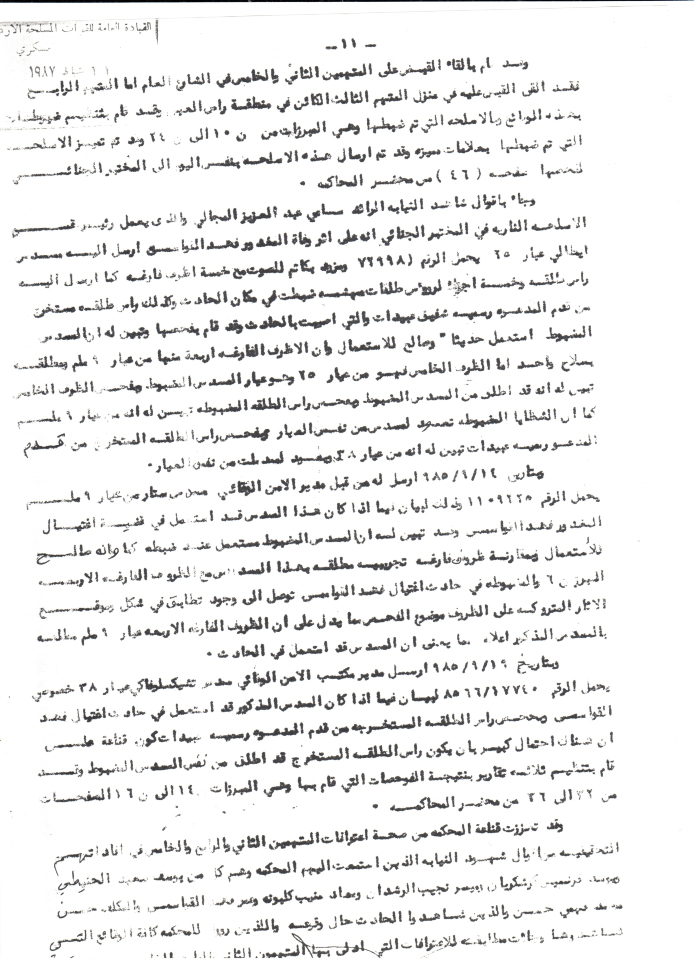 القيادة العامة للقوات المسلحة الارد
١٩٨٧
-- ١١ --
قام بالقاء القبض على المتهمين الثاني والخامس في الشارع العام اما المتهم الرابع
فقد القى القبض عليه في منزل المتهم الثالث الكائن في منطقة راس العين وقد قام بتنظيم ضبوطات
بهذه الوقائع وبالاسلحه التي تم ضبطها وهي المبرزات من ن ١٠ الى ن ٢٤ وقد تم تمييز الاسلحه
التي تم ضبطها بعلامات مميزه وقد تم ارسال هذه الاسلحه بنفس اليوم الى المختبر الجنائي
لفحصها صفحه (٤٦) من محضر المحاكمه ٠
وبناء باقوال شاهد النيابه الرائد سامي عبد العزيز المجالي والذى يعمل رئيس قسم
الاسلحه الناريه في المختبر الجنائي انه على اثر وفاة المغدور فهد القواسمي ارسل اليه مسدس
ايطالي عيار ٢٥ يحمل الرقم (٧٢٩٩٨ ومزود بكاتم للصوت مع خمسة اظرف فارغه كما ارسل اليه
راس طلقه وخمسة اجزاء لرؤوس طلقات مهشمه ضبطت في مكان الحادث وكذلك راس طلقه مستخرج
من قدم المدعوه رسميه شفيق عبيدات والتي اصيبت بالحادث وقد قام بفحصها وتبين له ان المسدس
المضبوط استعمل حديثا" وصالح للاستعمال وان الاظرف الفارغه اربعة منها من عيار ٩ ملم ومطلقه
بسلاح واحد اما الظرف الخامس فهو من عيار ٢٥ وهو عيار المسدس المضبوط وبفحص الظرف الخامس
تبين له انه قد اطلق من المسدس المضبوط وبفحص راس الطلقه المضبوطه تبين له انه من عيار ٩ ملم
كما ان الشظايا المضبوطه تعود لمسدس من نفس العيار وبفحص راس الطلقه المستخرج من قدم
المدعو رسميه عبيدات تبين له انه من عيار ٣٨ ويعود لمسدس من نفس العيار ٠
وبتاريخ ٩٨٥/٩/١٤ ارسل له من قبل مدير الامن الوقائي مسدس ستار من عيار ٩ ملم
يحمل الرقم ١١٠٩٢٢٥ وذلك لبيان فيما اذا كان هذا المسدس قد استعمل في قضية اغتيال
المغدور فهد القواسمي وقد تبين له ان المسدس المضبوط مستعمل عند ضبطه كما وانه صالح
للاستعمال وبمقارنة ظروف فارغه تجريبيه مطلقه بهذا المسدس مع الظروف الفارغه الاربعه
المبرز ن ٦ والمضبوطه في حادث اغتيال فهد القواسمي توصل الى وجود تطابق في شكل وموقع
الاثار المتروكه على الظروف موضوع الفحص مما يدل على ان الظروف الفارغه الاربعه عيار ٩ ملم مطلقه
بالمسدس المذكور اعلاه مما يعني ان المسدس قد استعمل في الحادث ٠
وبتاريخ ٩٨٥/٩/١٩ ارسل مدير مكتب الامن الوقائي مسدس تشيكسلوفاكي عيار ٣٨ خصوصي
يحمل الرقم ٨٥٦٦/١٧٧٤٠ لبيان فيما اذا كان المسدس المذكور قد استعمل في حادث اغتيال فهد
القواسمي وبفحص راس الطلقه المستخرجه من قدم المدعوه رسميه عبيدات كون قناعة على
ان هناك احتمال كبير بان يكون راس الطلقه المستخرج قد اطلق من نفس المسدس المضبوط وقد
قام بتنظيم ثلاثه تقارير بنتيجة الفحوصات التي قام بها وهي المبرزات ١٤ الى ن ١٦ الصفحات
من ٣٢ الى ٣٦ من محضر المحاكمه ٠
وقد تعززت قناعة المحكمه من صحة اعترافات المتهمين الثاني والرابع والخامس في افاداتهم
التحقيقيه من اقوال شهود النيابه الذين استمعت اليهم المحكمه وهم كل من يوسف سعيد الحنيطي
نجيب الرشدان وعماد منيب كلبونه القياسمي والمكلف حسن
حسن والذين شاهدوا الحادث حال وقوعه والذين للمحكمه كافة الوقائع التي
مطابقه للاعترافات التي ادلى بها المتهمين الثاني